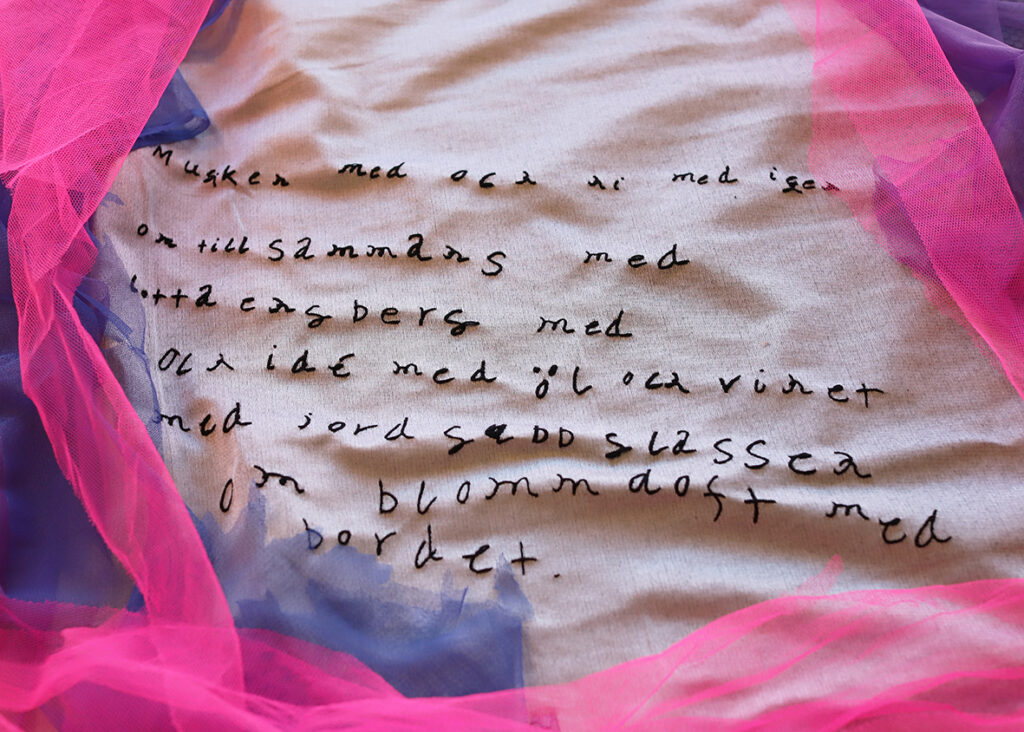 Musken med och ni med igen
om tillsammans med
Lotta engberg med
och idé med öl och vinet
med jordgubbglassen
om blommdoft med
bordet.